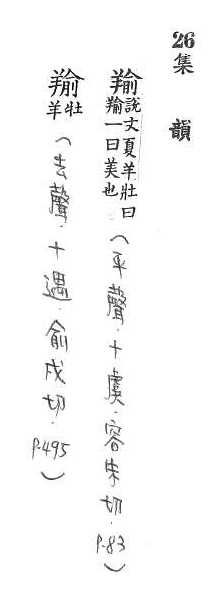 26集 韻
羭說文夏羊牡曰羭一曰美也(平聲.十虞.容朱切.P.83)
羭牡羊(去聲.十遇.俞戍切.P.495)